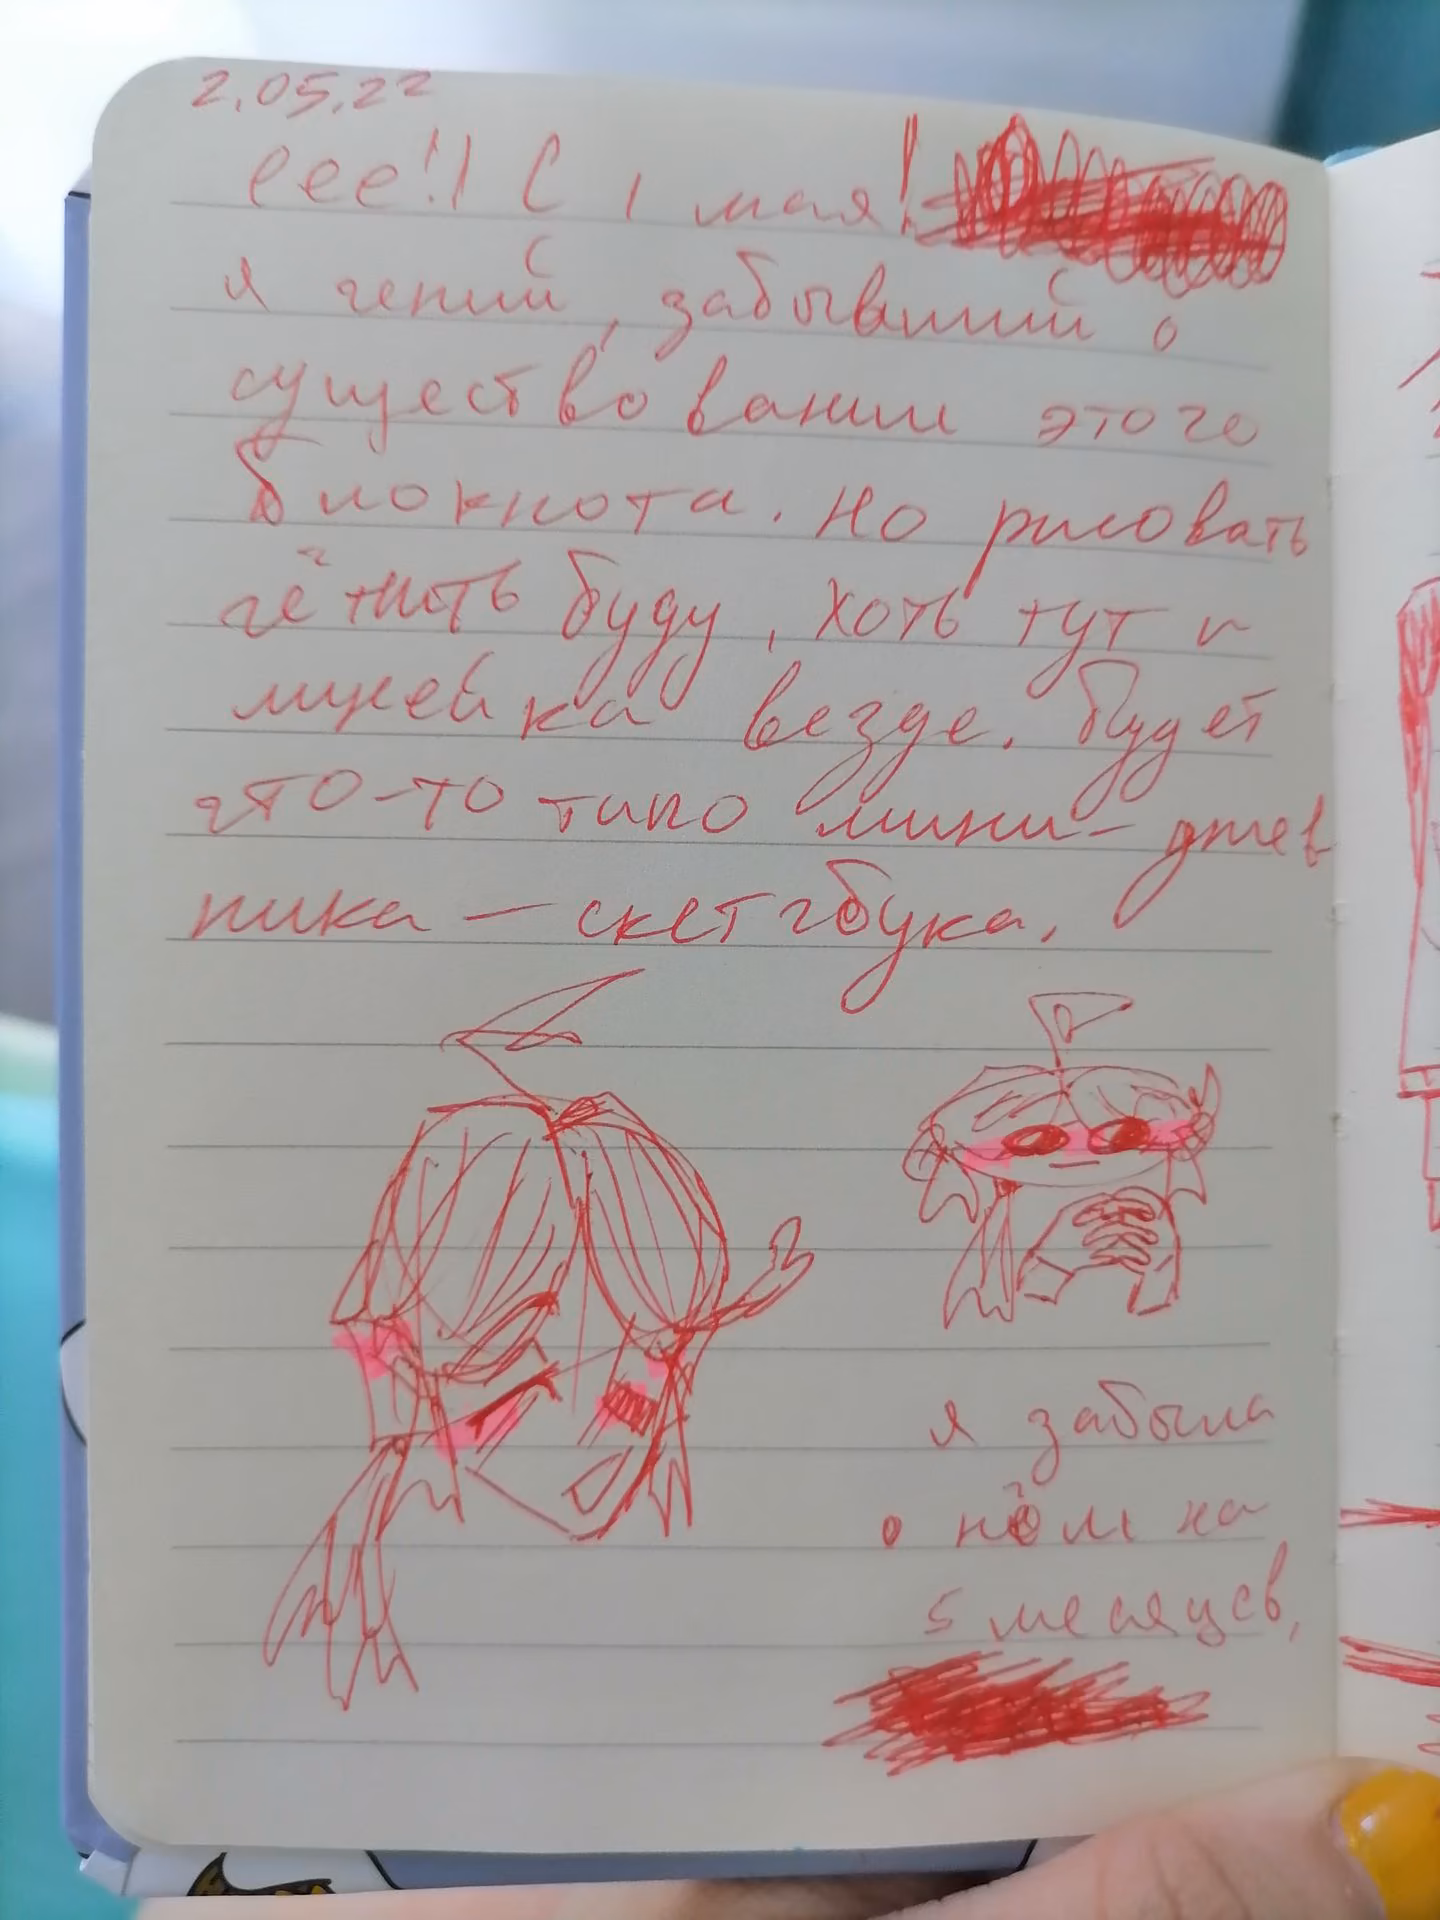 2.05.22
еее!! С 1 мая!
я гений, забывший о
существовании этого
блокнота. но рисовать
буду, хоть тут и
линейка везде. будет
что-то типо мини-днев
ника — скетчбука.
я забыла
о нём на
5 месяцев,